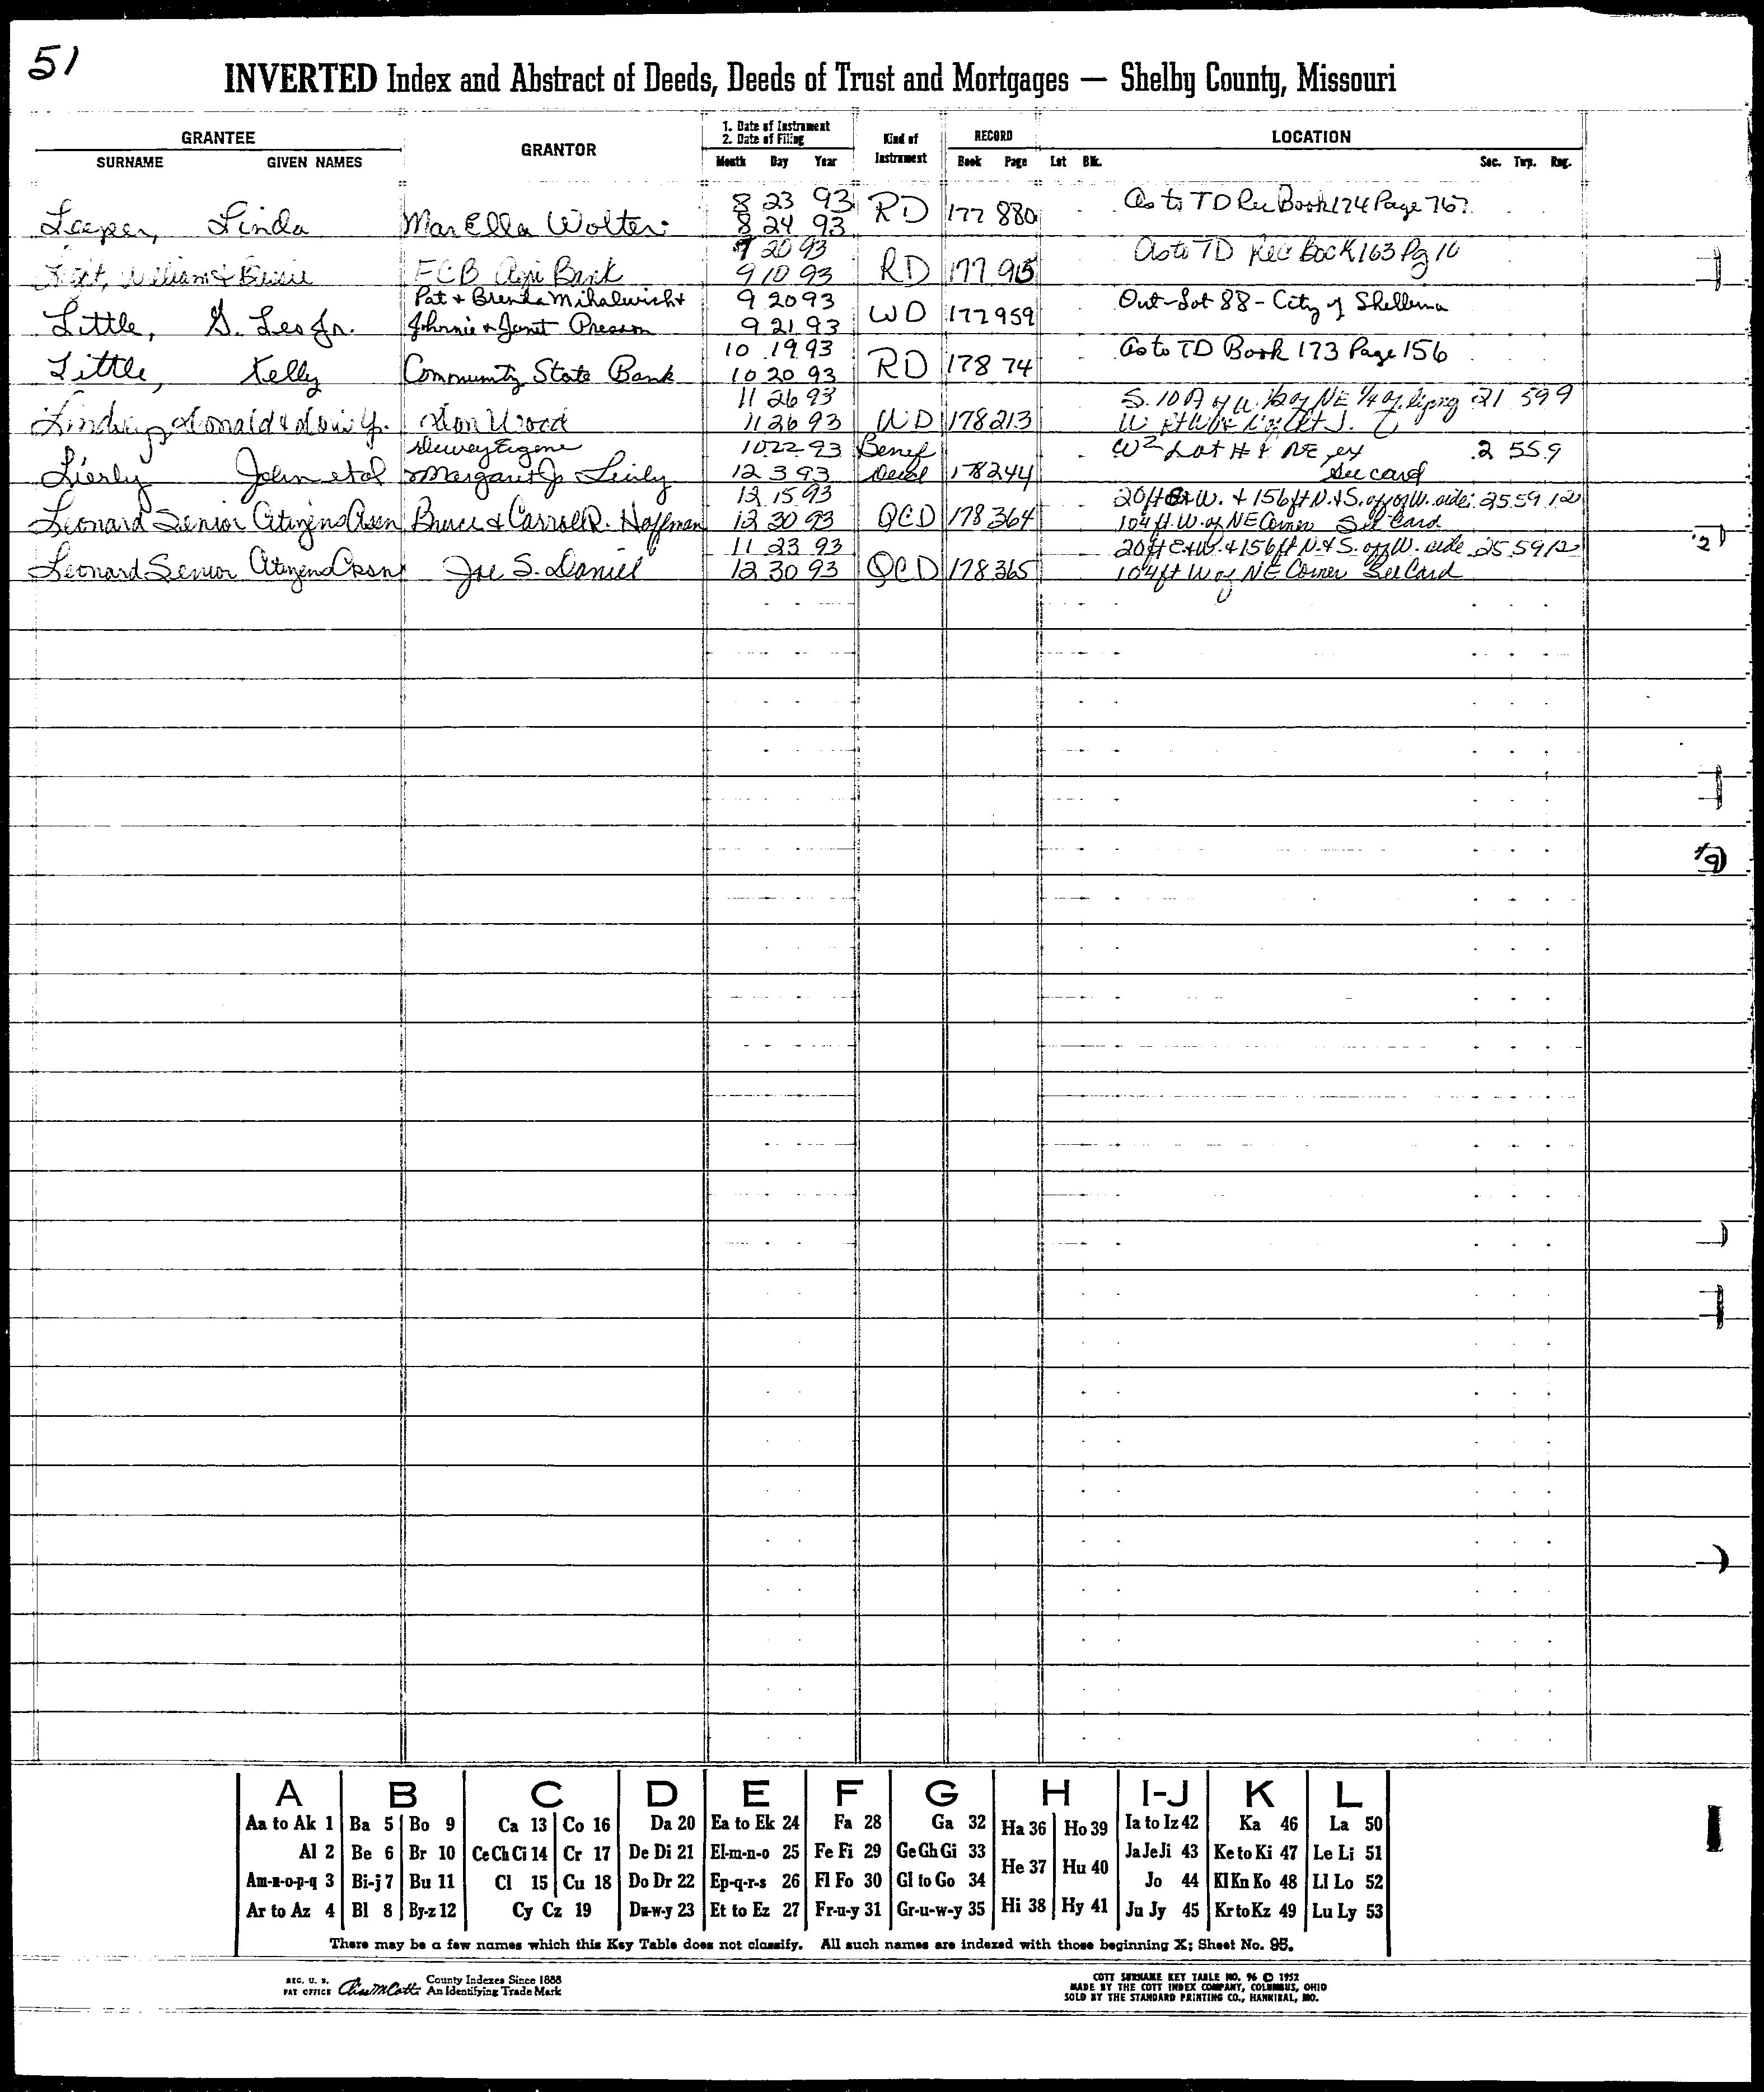 51
INVERTED Index and Abstract of Deeds, Deeds of Trust and Mortgages — Shelby County, Missouri
GRANTEE
SURNAME GIVEN NAMES
GRANTOR
1. Date of Instrument
2. Date of Filing
Month Day Year
Kind of
Instrument
RECORD
Book Page
LOCATION
Lot Blk. Sec. Twp. Rng.
8 23 93 As to TD Rec Book 174 Page 767
Leeper, Linda MarElla Wolter 8 24 93 RD 177 880
7 20 93 As to TD Rec Book 163 Pg 16
William & FCB Agri Bank 9 10 93 RD 177 915
Pat & Brenda Mihalevich & 9 20 93 Out-Lot 88 - City of Shelbina
Little, G. Leo Jr. Johnnie & Janet Presson 9 21 93 WD 177 959
10 19 93 As to TD Book 173 Page 156
Little, Kelly Community State Bank 10 20 93 RD 178 74
11 26 93 S. 10 A of W. 1/2 of NE 1/4 of 21 59 9
Donald & Don Wood 11 26 93 WD 178 213
Dewey Eugene 10 22 93 Benef W2 Lot # 1 NE, ex 2 55 9
Lierly John et al & Margaret J. Lierly 12 3 93 Deed 178 244 See card
12 15 93 20 ft E & W. & 156 ft N. & S. off of W. side 25 59 12
Leonard Senior Citizens Assn Bruce & Carroll R. Hoffman 12 30 93 QCD 178 364 104 ft. W. of NE Corner See Card
11 23 93 20 ft E & W. & 156 ft N. & S. off W. side 25 59 12
Leonard Senior Citizens Assn Joe S. Daniel 12 30 93 QCD 178 365 104 ft W of NE Corner See Card
A B C D E F G H I-J K L
Aa to Ak 1 Ba 5 Bo 9 Ca 13 Co 16 Da 20 Ea to Ek 24 Fa 28 Ga 32 Ha 36 Ho 39 Ia to Iz 42 Ka 46 La 50
Al 2 Be 6 Br 10 Ce Ch Ci 14 Cr 17 De Di 21 El-m-n-o 25 Fe Fi 29 Ge Gh Gi 33 He 37 Hu 40 Ja Je Ji 43 Ke to Ki 47 Le Li 51
Am-n-o-p-q 3 Bi-j 7 Bu 11 Cl 15 Cu 18 Do Dr 22 Ep-q-r-s 26 Fl Fo 30 Gl to Go 34 Jo 44 Kl Kn Ko 48 Ll Lo 52
Ar to Az 4 Bl 8 By-z 12 Cy Cz 19 Du-w-y 23 Et to Ez 27 Fr-u-y 31 Gr-u-w-y 35 Hi 38 Hy 41 Ju Jy 45 Kr to Kz 49 Lu Ly 53
There may be a few names which this Key Table does not classify. All such names are indexed with those beginning X; Sheet No. 95.
REG. U. S.
PAT OFFICE
County Indexes Since 1888
An Identifying Trade Mark
COTT SURNAME KEY TABLE NO. 96 © 1952
MADE BY THE COTT INDEX COMPANY, COLUMBUS, OHIO
SOLD BY THE STANDARD PRINTING CO., HANNIBAL, MO.